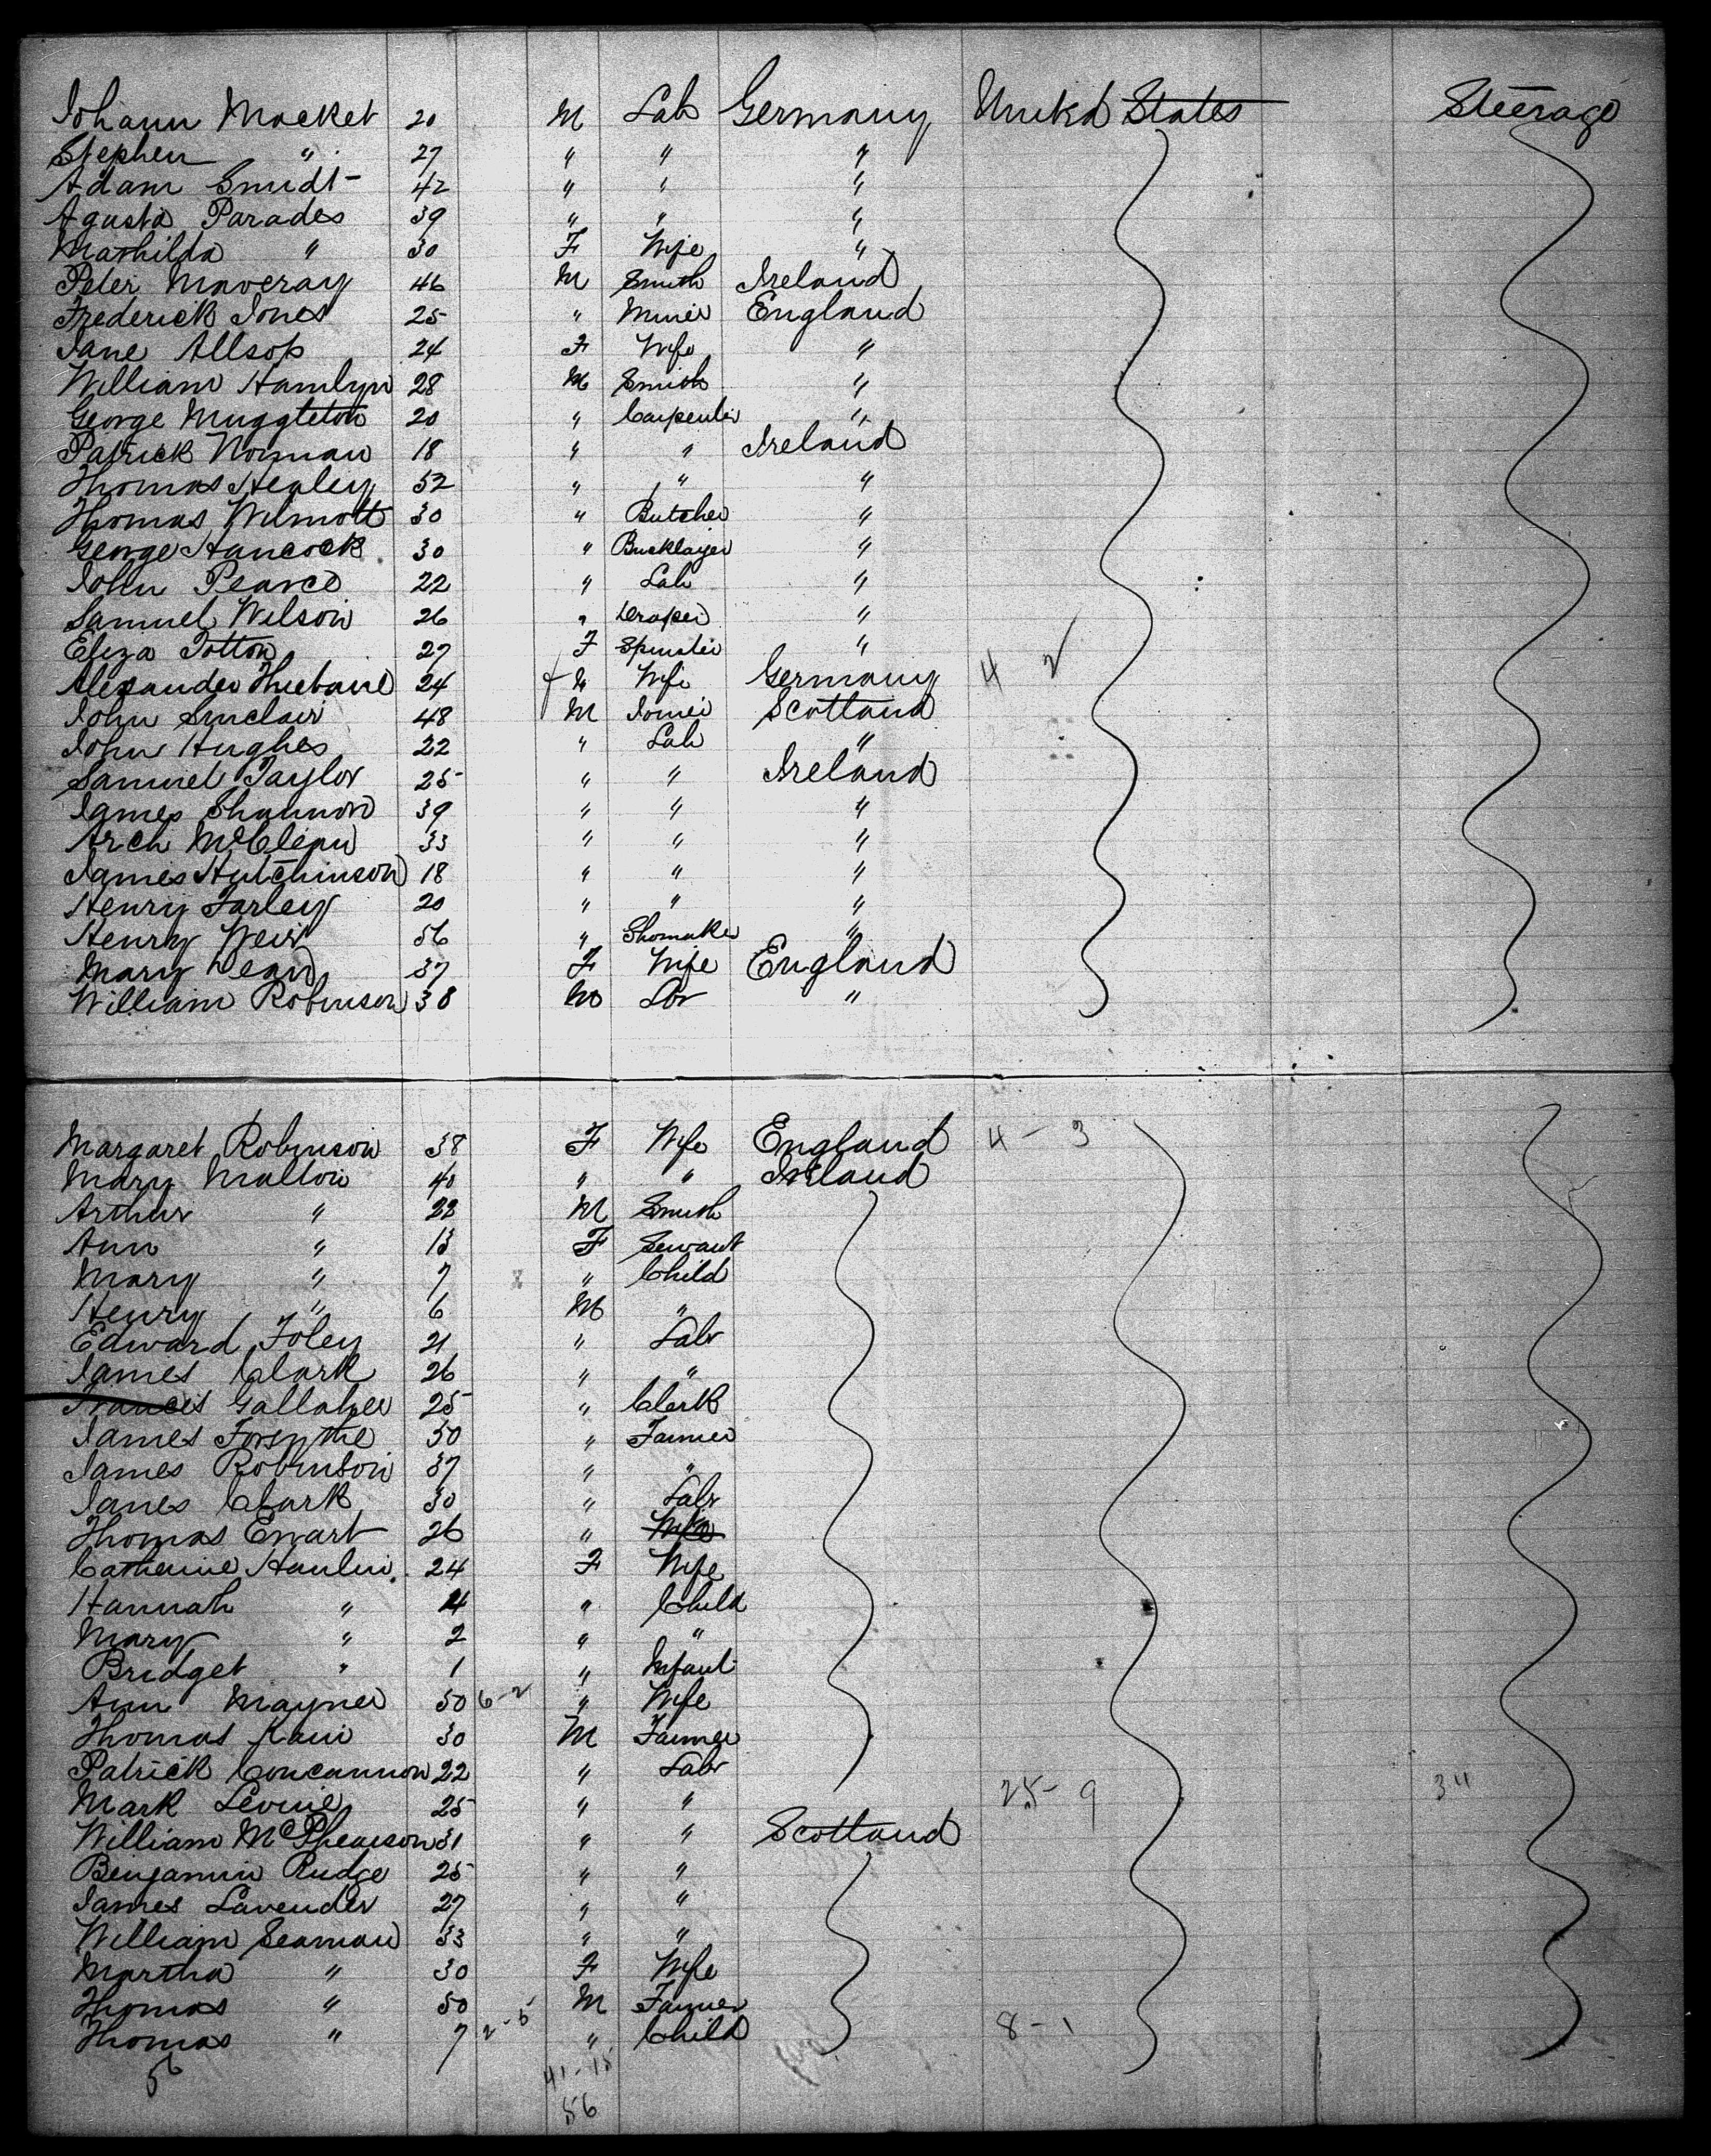 Johann Mocket 20 M Lab Germany United States Steerage
Stephen " 27 " " "
Adam Smidt 42 " " "
Agusta Parades 39 " " "
Mathilda " 30 F Wife "
Peter Maveray 46 M Smith Ireland
Frederick Jones 25 " Miner England
Jane Allsop 24 F Wife "
William Hamlyn 28 M Smith "
George Muggleton 20 " Carpenter "
Patrick Norman 18 " " Ireland
Thomas Healey 52 " " "
Thomas Wilmott 30 " Butcher "
George Hancock 30 " Bricklayer "
John Pearce 22 " Lab "
Samuel Wilson 26 " Draper "
Eliza Totton 27 F Spinster "
Alexander 24 Wife Germany 4 2
John Sinclair 48 M Joiner Scotland
John Hughes 22 " Lab "
Samuel Taylor 25 " " Ireland
James Shannon 39 " " "
Arch McClean 33 " " "
James Hutchinson 18 " " "
Henry Farley 20 " " "
Henry Weir 56 " Shomaker "
Mary Dean 37 F Wife England
William Robinson 38 M Lbr "
Margaret Robinson 38 F Wife England 4 - 3
Mary Mallon 40 " " Ireland
Arthur " 22 M Smith
Ann " 13 F Servant
Mary " 7 " Child
Henry " 6 M "
Edward Foley 21 " Labr
James Clark 26 " "
Francis Gallaher 25 " Clerk
James Forsythe 50 " Farmer
James Robinson 37 " "
James Clark 30 " Labr
Thomas Ewart 26 " Wife
Catherine Hanlin 24 F Wife
Hannah " 4 " Child
Mary " 2 " "
Bridget " 1 " Infant
Ann Mayner 50 6-2 " Wife
Thomas Kain 30 M Farmer
Patrick Concannon 22 " Labr
Mark Levine 25 " " 25 - 9 34
William McPhearson 31 " " Scotland
Benjamin Rudge 25 " "
James Lavender 27 " "
William Seaman 33 " "
Martha " 30 F Wife
Thomas " 50 M Farmer
Thomas " 7 2-5 " Child 8 - 1
56 41-15
56